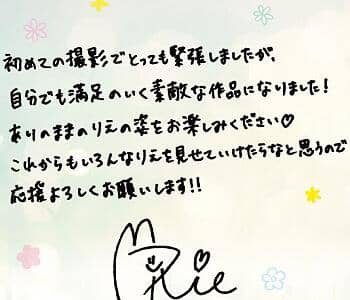 初めての撮影でとっても緊張しましたが、
自分でも満足のいく素敵な作品になりました!
ありのままのりえの姿をお楽しみください♡
これからもいろんなりえを見せていけたらなと思うので
応援よろしくお願いします!!
Rie